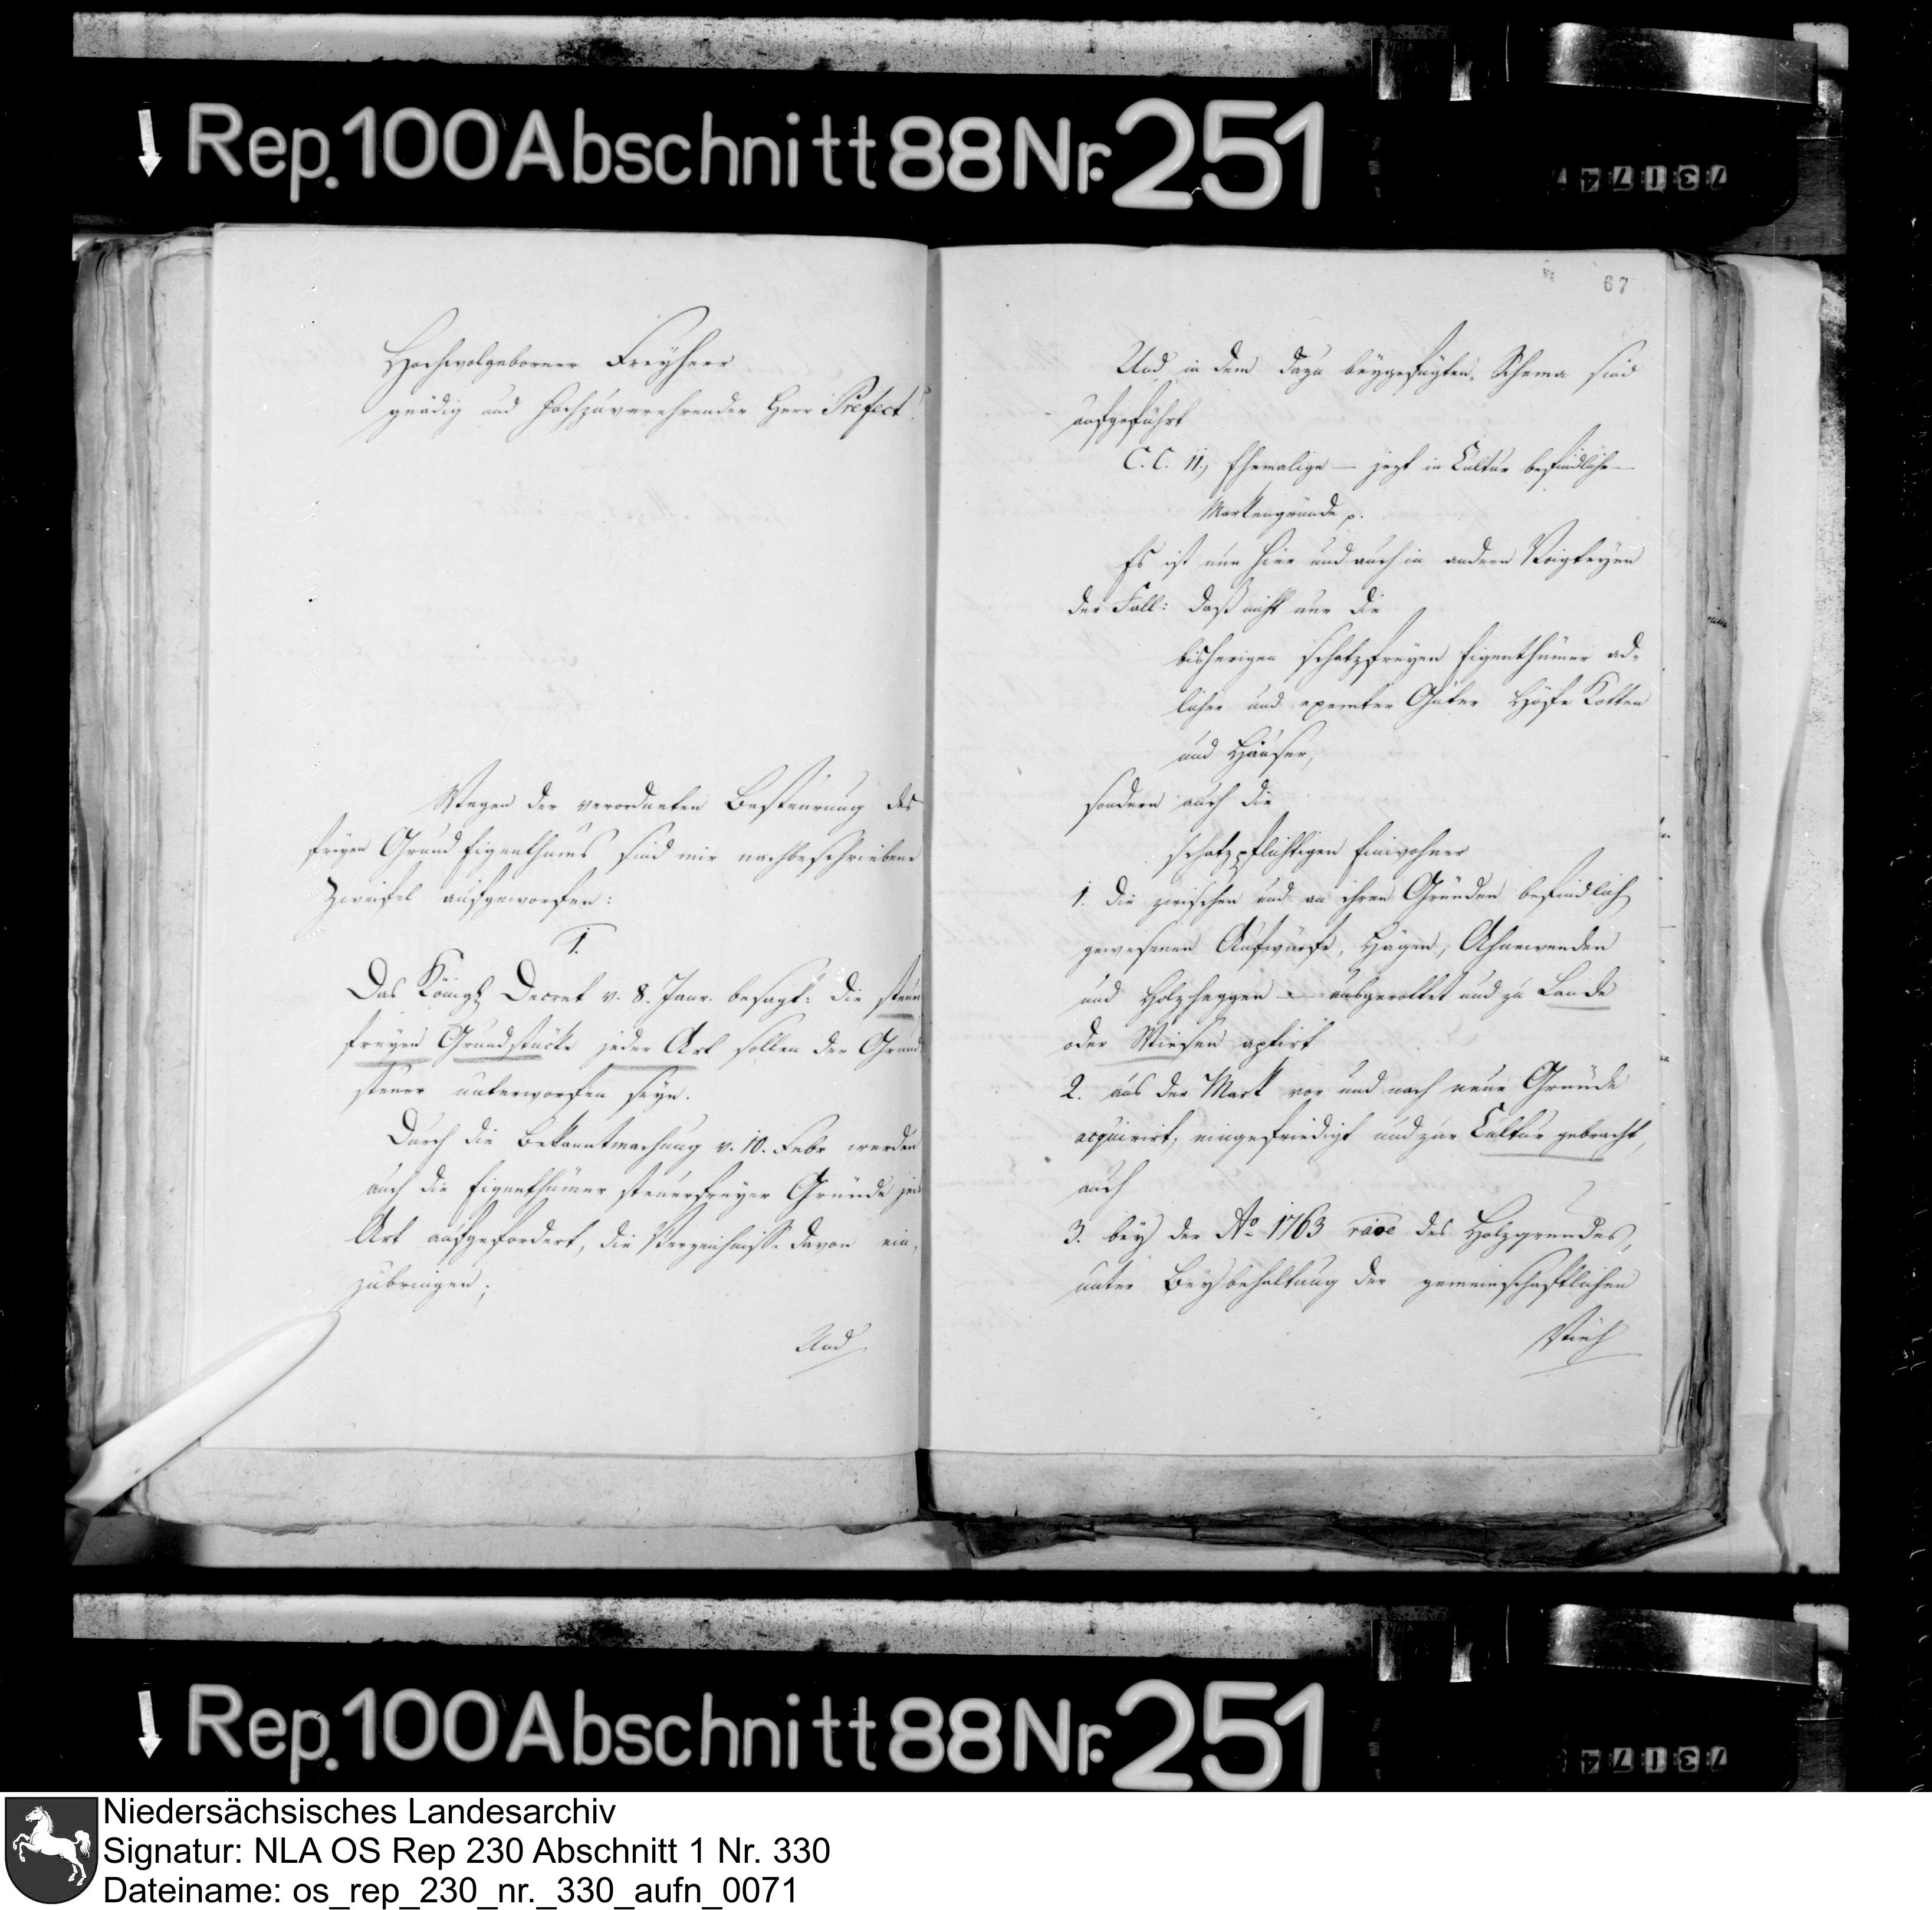 Rep. 100 Abschnitt 88 Nr. 251
Hochwolgeborner Freyherr
gnädig und hochzuverehrender Herr Prefect!
Wegen der verordneten Besteurung des
freyen Grund Eigenthums sind mir nachbeschriebene
Zweifel aufgeworfen:
1.
Das Königl Decret v. 8. Janr. besagt: die steuer
freyen Grundstücke jeder Art sollen der Grund
steuer unterworfen seyn.
Durch die Bekanntmachung v. 10. Febr werden
auch die Eigenthümer steuerfreyer Gründe jed
Art aufgefordert, die Verzeichnisse davon ein-
zubringen;
Und
67
Und in dem dazu beygefügten Schema sind
aufgeführt
C. C. 11, Ehemalige — jezt in Cultur befindliche —
Markengründe p.
Es ist nun hier und auch in andern Voigteyen
der Fall: daß nicht nur die
bisherigen schatzfreyen Eigenthümer ad-
licher und exemter Güter Höfe Kotten
und Häuser,
sondern auch die
schatzpflichtigen Einwohner
1. die zwischen und an ihren Gründen befindlich
gewesenen Aufwürfe, Hägen, Ahnewenden
und Holzheggen — ausgerottet und zu Lande
oder Wiesen aptirt
2. aus der Mark vor und nach neue Gründe
acquirirt, eingefriedigt und zur Cultur gebracht,
auch
3. bey der Ao 1763 des Holzgrundes,
unter Beybehaltung der gemeinschaftlichen
Vieh
Rep. 100 Abschnitt 88 Nr. 251
Niedersächsisches Landesarchiv
Signatur: NLA OS Rep 230 Abschnitt 1 Nr. 330
Dateiname: os_rep_230_nr._330_aufn_0071